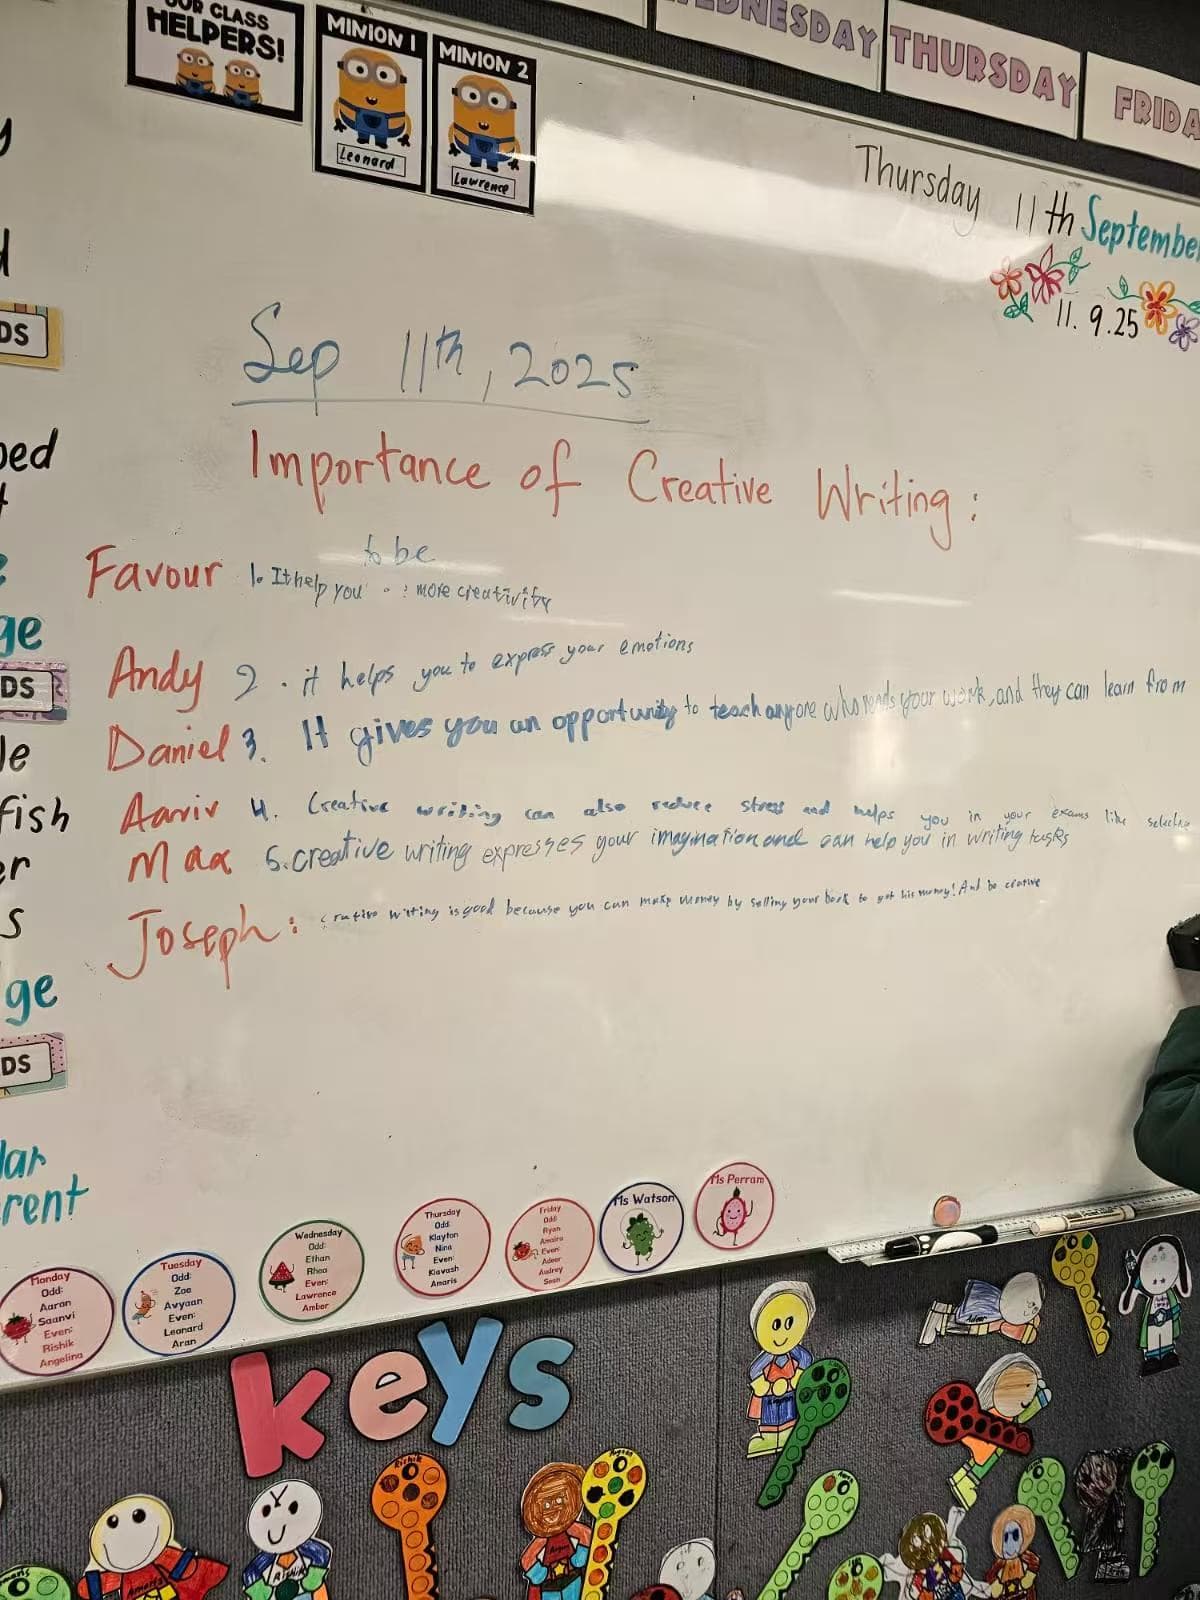 OUR CLASS
HELPERS!
MINION 1
Leonard
MINION 2
Lawrence
WEDNESDAY
THURSDAY
FRIDA
Thursday 11th September
11.9.25
Sep 11th, 2025
Importance of Creative Writing:
Favour 1. It help you to be more creativity
Andy 2. it helps you to express your emotions
Daniel 3. It gives you an opportunity to teach anyone who reads your work, and they can learn from
Aariv 4. Creative writing can also reduce stress and helps you in your exams like selective
Max 5. creative writing expresses your imagination and can help you in writing tasks
Joseph: creative writing is good because you can make money by selling your book to get his money! And be creative
y
d
DS
ped
ge
DS
le
fish
er
s
ge
DS
lar
rent
Monday
Odd:
Aaran
Saanvi
Even:
Rishik
Angelina
Tuesday
Odd:
Zoe
Avyaan
Even:
Leonard
Aran
Wednesday
Odd:
Ethan
Rhea
Even:
Lawrence
Amber
Thursday
Odd:
Klayton
Nina
Even:
Kiavash
Amaris
Friday
Odd:
Ryan
Amaira
Even:
Adeer
Audrey
Ms Watson
Ms Perram
keys
Rishik